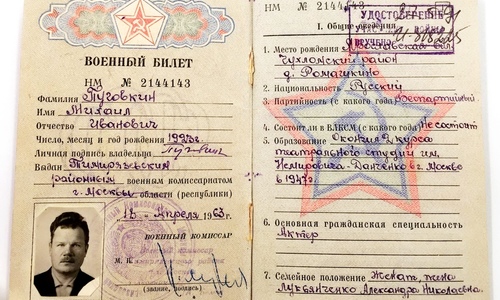 ВОЕННЫЙ БИЛЕТ
НМ № 2144143
Фамилия Пуговкин
Имя Михаил
Отчество Иванович
Число, месяц и год рождения 1923г.
Личная подпись владельца
Выдан Тимирязевским
районным военным комиссариатом
г. Москвы области (республики)
18 Апреля 1963 г.
ВОЕННЫЙ КОМИССАР
М. П.
(звание, подпись)
НМ № 2144143
УДОСТОВЕРЕНИЕ
ВРУЧЕНО
I. Общие сведения
1. Место рождения
Чухломский район
д. Рамешки
2. Национальность Русский
3. Партийность (с какого года) Беспартийный
4. Состоит ли в ВЛКСМ (с какого года) Не состоит
5. Образование Окончил 2 курса
театральной студии им.
Немировича-Данченко в г. Москве
в 1947г.
6. Основная гражданская специальность
Актер
7. Семейное положение Женат, жена
Лукьянченко Александра Николаевна.